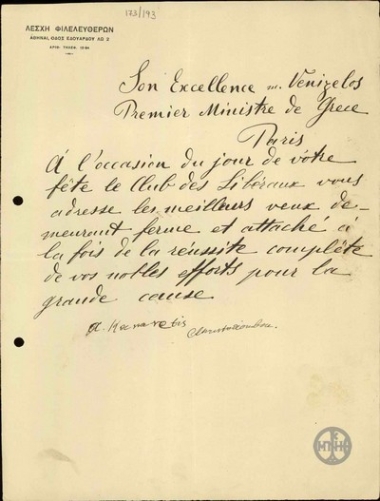 173/193
ΛΕΣΧΗ ΦΙΛΕΛΕΥΘΕΡΩΝ
ΑΘΗΝΑΙ, ΟΔΟΣ ΕΔΟΥΑΡΔΟΥ ΛΩ 2
Son Excellence m. Vénizelos
Premier Ministre de Grece
Paris
À l'occasion du jour de votre
fête le Club des Libéraux vous
adresse les meilleurs veux de-
meurant ferme et attaché à
la fois de la réussite complète
de vos nobles efforts pour la
grande cause